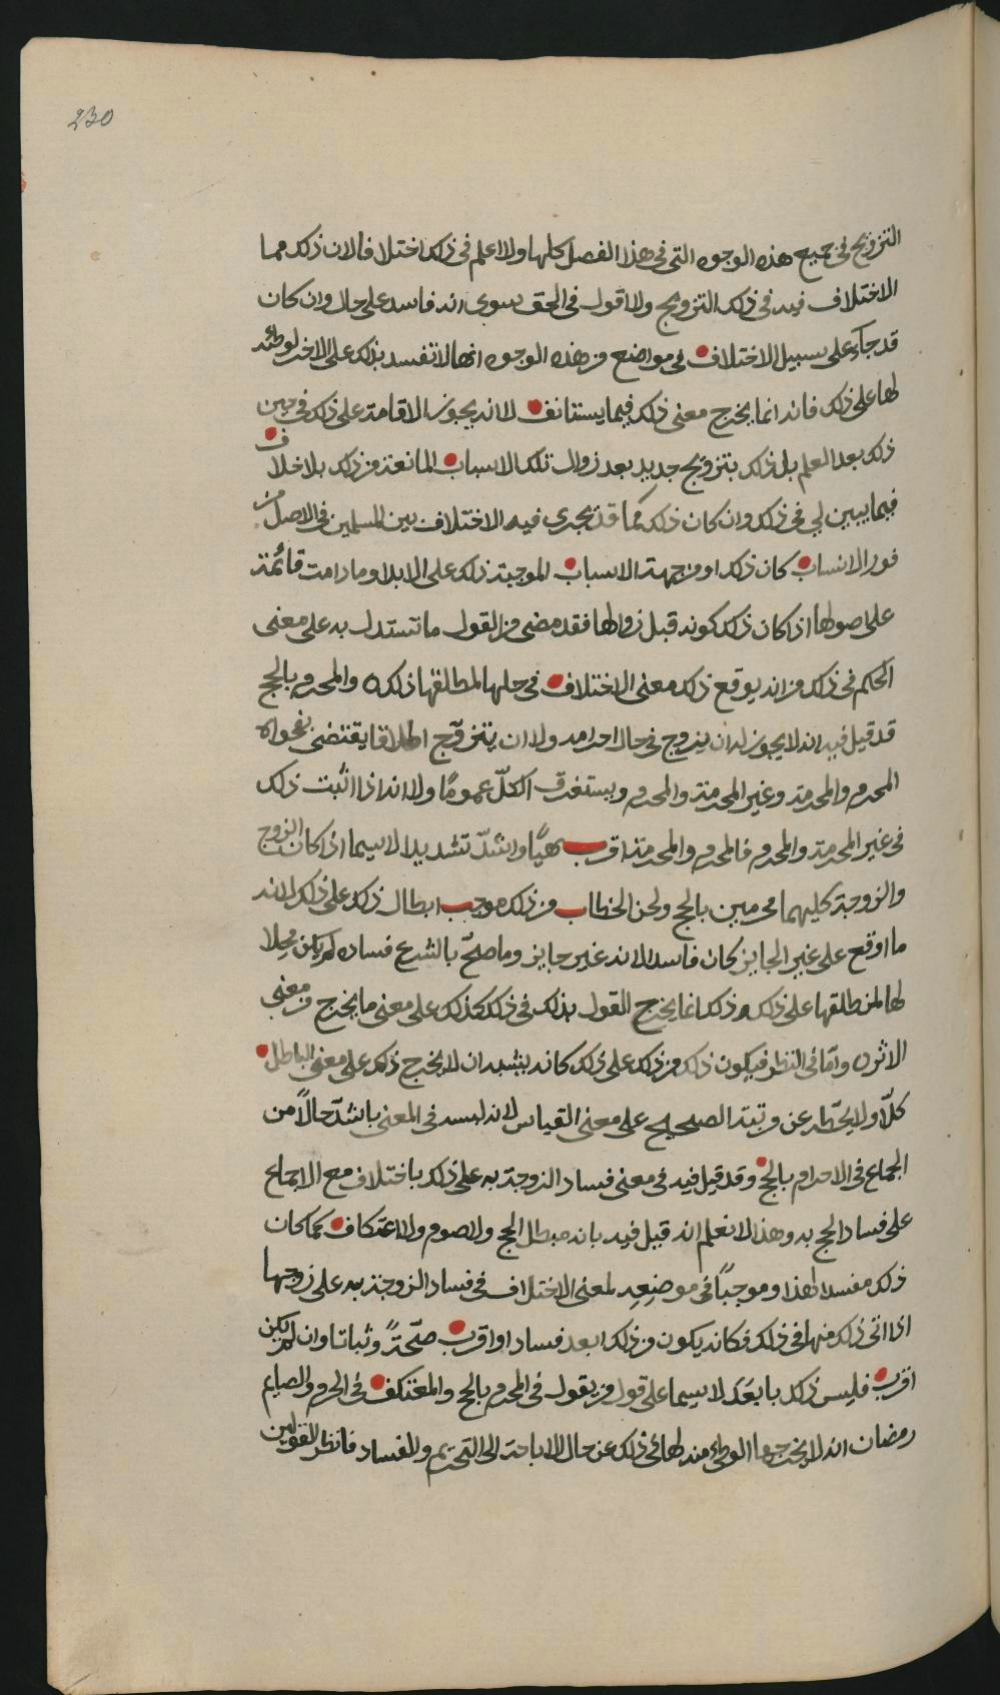 230
التزويج في جميع هذه الوجوه التي في هذا الفصل كلها ولا اعلم في ذلك اختلافا لان ذلك مما
الاختلاف فيه في ذلك التزويج ولا اقول في الحق سوى انه فاسد على حال وان كان
قد جآء على سبيل الاختلاف في مواضع من هذه الوجوه انها لا تفسد بذلك على الاخر لوطئه
لها على ذلك فانه انما يخرج معنى ذلك فيما يستانف لا انه يجوز الاقامة على ذلك في حين
ذلك بعد العلم بل ذلك بتزويج جديد بعد زوال تلك الاسباب المانعة من ذلك بلا خلاف
فيما يبين لي في ذلك وان كان ذلك مما قد يجري فيه الاختلاف بين المسلمين في الاصل من
فور الانساب كان ذلك او من جهة الاسباب الموجبة ذلك على الابد او ما دامت قائمة
على اصولها اذا كان ذلك كونه قبل زوالها فقد مضى من القول ما تستدل به على معنى
الحكم في ذلك من انه يوقع ذلك معنى الاختلاف في حلها لمطلقها ذلك ٥ والمحرم بالحج
قد قيل فيه انه لا يجوز له ان يزوج في حال احرامه ولا ان يتزوّج اطلاقا يقتضي فحواه
المحرم والمحرمة وغير المحرمة والمحرم ويستغرق الكلّ عمومًا ولا انه اذا اثبت ذلك
في غير المحرمة والمحرم فالمحرم والمحرمة اقرب نهيًا واشدّ تشديدا لا سيما اذا كان الزوج
والزوجة كليهما محرمين بالحج ولحن الخطاب من ذلك موجب ابطال ذلك على ذلك لانه
ما اوقع على غير الجايز كان فاسدا لانه غير جايز وما صحّ بالشرع فساده لم يكن محلا
لها لمن طلقها على ذلك وذلك انما يخرج القول بذلك في ذلك كذلك على معنى ما يخرج من معنى
الاثر ٥ وامّا في النظر فيكون ذلك من ذلك على ذلك كانه يشبه ان لا يخرج ذلك على معنى الباطل
كلّا ولا يحّط عن رتبة الصحيح على معنى القياس لانه ليس في المعنى باشدّ حالًا من
الجماع في الاحرام بالحج وقد قيل فيه في معنى فساد الزوجة به على ذلك باختلاف مع الاجماع
على فساد الحج به وهذا لا نعلم انه قيل فيه بانه مبطل الحج ولا صوم ولا اعتكاف كما كان
ذلك مفسدا لهذا وموجبًا في موضعه لمعنى الاختلاف في فساد الزوجة به على زوجها
اذا اتى ذلك منها في ذلك فكانه يكون من ذلك ابعد فسادا واقرب صحّةً وثباتا وان لم يكن
اقرب فليس ذلك بابعَد لا سيما على قول من يقول في المحرم بالحج والمعتكف في الحرم والصايم
رمضان انه لا يخرجها الوطئ منه لها في ذلك عن حال الاباحة الى التحريم والفساد فانظر القولين